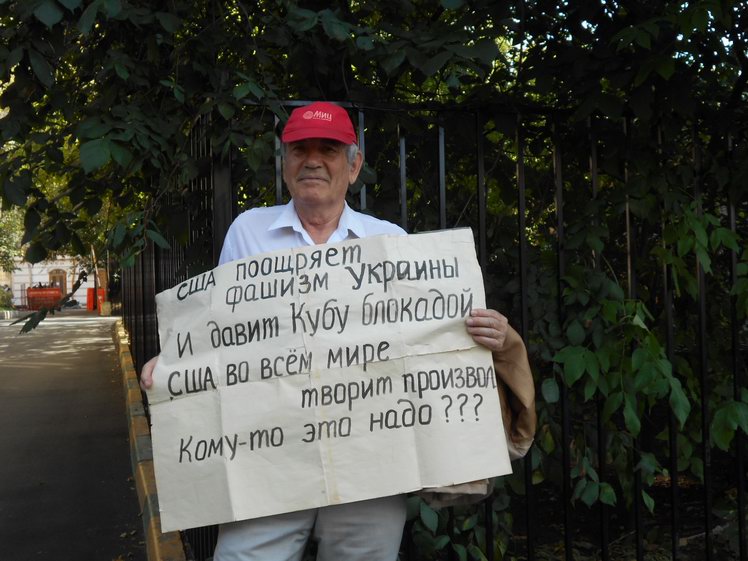 МИЦ
США ПООЩРЯЕТ
ФАШИЗМ УКРАИНЫ
И ДАВИТ КУБУ БЛОКАДОЙ
США ВО ВСЁМ МИРЕ
ТВОРИТ ПРОИЗВОЛ
Кому-то это надо ???